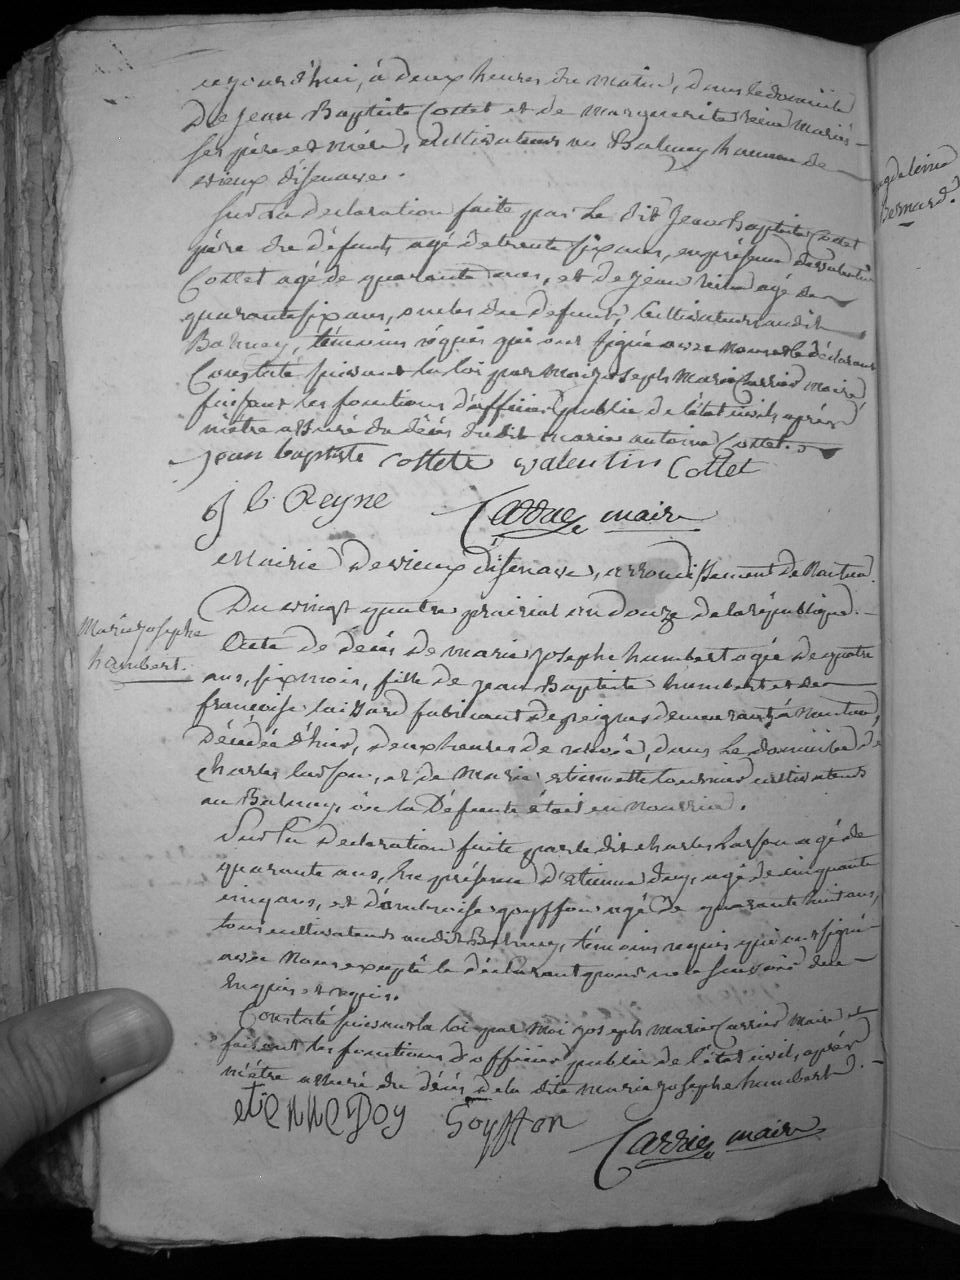 cejourd'hui, à deux heures du matin, dans le domicile
De jean Baptiste Cottet et de marguerite reine mariés
ses père et mère, cultivateurs au Balmay hameau de
vieux d'isenave.
Sur La declaration faite par Le dit Jean Baptiste Cottet
père du défunt, agé de trente six ans, en présence de valentin
Cottet agé de quarante ans, et de jean reine agé de
quarante six ans, oncles du defunt, cultivateurs audit
Balmay, témoins réquis qui ont signé avec nous et le déclarant
Constaté suivant la loi par moi joseph marie Carrier maire
faisant les fonctions d'officier public de l'état civil, après
m'être assuré du décès du dit marie antoine Cottet.
jean baptiste cottete valentin Cottet
j b Reyne Carrier maire
Mairie De vieux d'isenave, arrondissement de Nantua.
Du vingt quatre prairial an douze de la république.
Marie josephe
humbert.
Acte de décès de marie josephe humbert agée de quatre
ans, six mois, fille de jean Baptiste humbert et de
françoise laizard fabricant de peignes demeurant à Nantua,
Décédée d'hier, deux heures de relevée, dans Le domicile de
charles lusson, et de Marie etiennette cultivateurs
au Balmay, où la Défunte était en nourrice.
Sur La Declaration faite par le dit charles agé de
quarante ans, En présence d'etienne doy, agé de cinquante
cinq ans, et d'ambroise goyffon agé De quarante huit ans,
tous cultivateurs audit Balmay, témoins requis qui ont signé
avec Nous excepté le déclarant pour ne le savoir de ce
Enquis et requis.
Constaté suivant la loi par moi joseph marie Carrier maire et
faisant les fonctions d'officier public de l'état civil, après
m'être assuré du décès de la dite marie josephe humbert.
etienne Doy Goyffon
Carrier maire
magdeleine
Bernard.